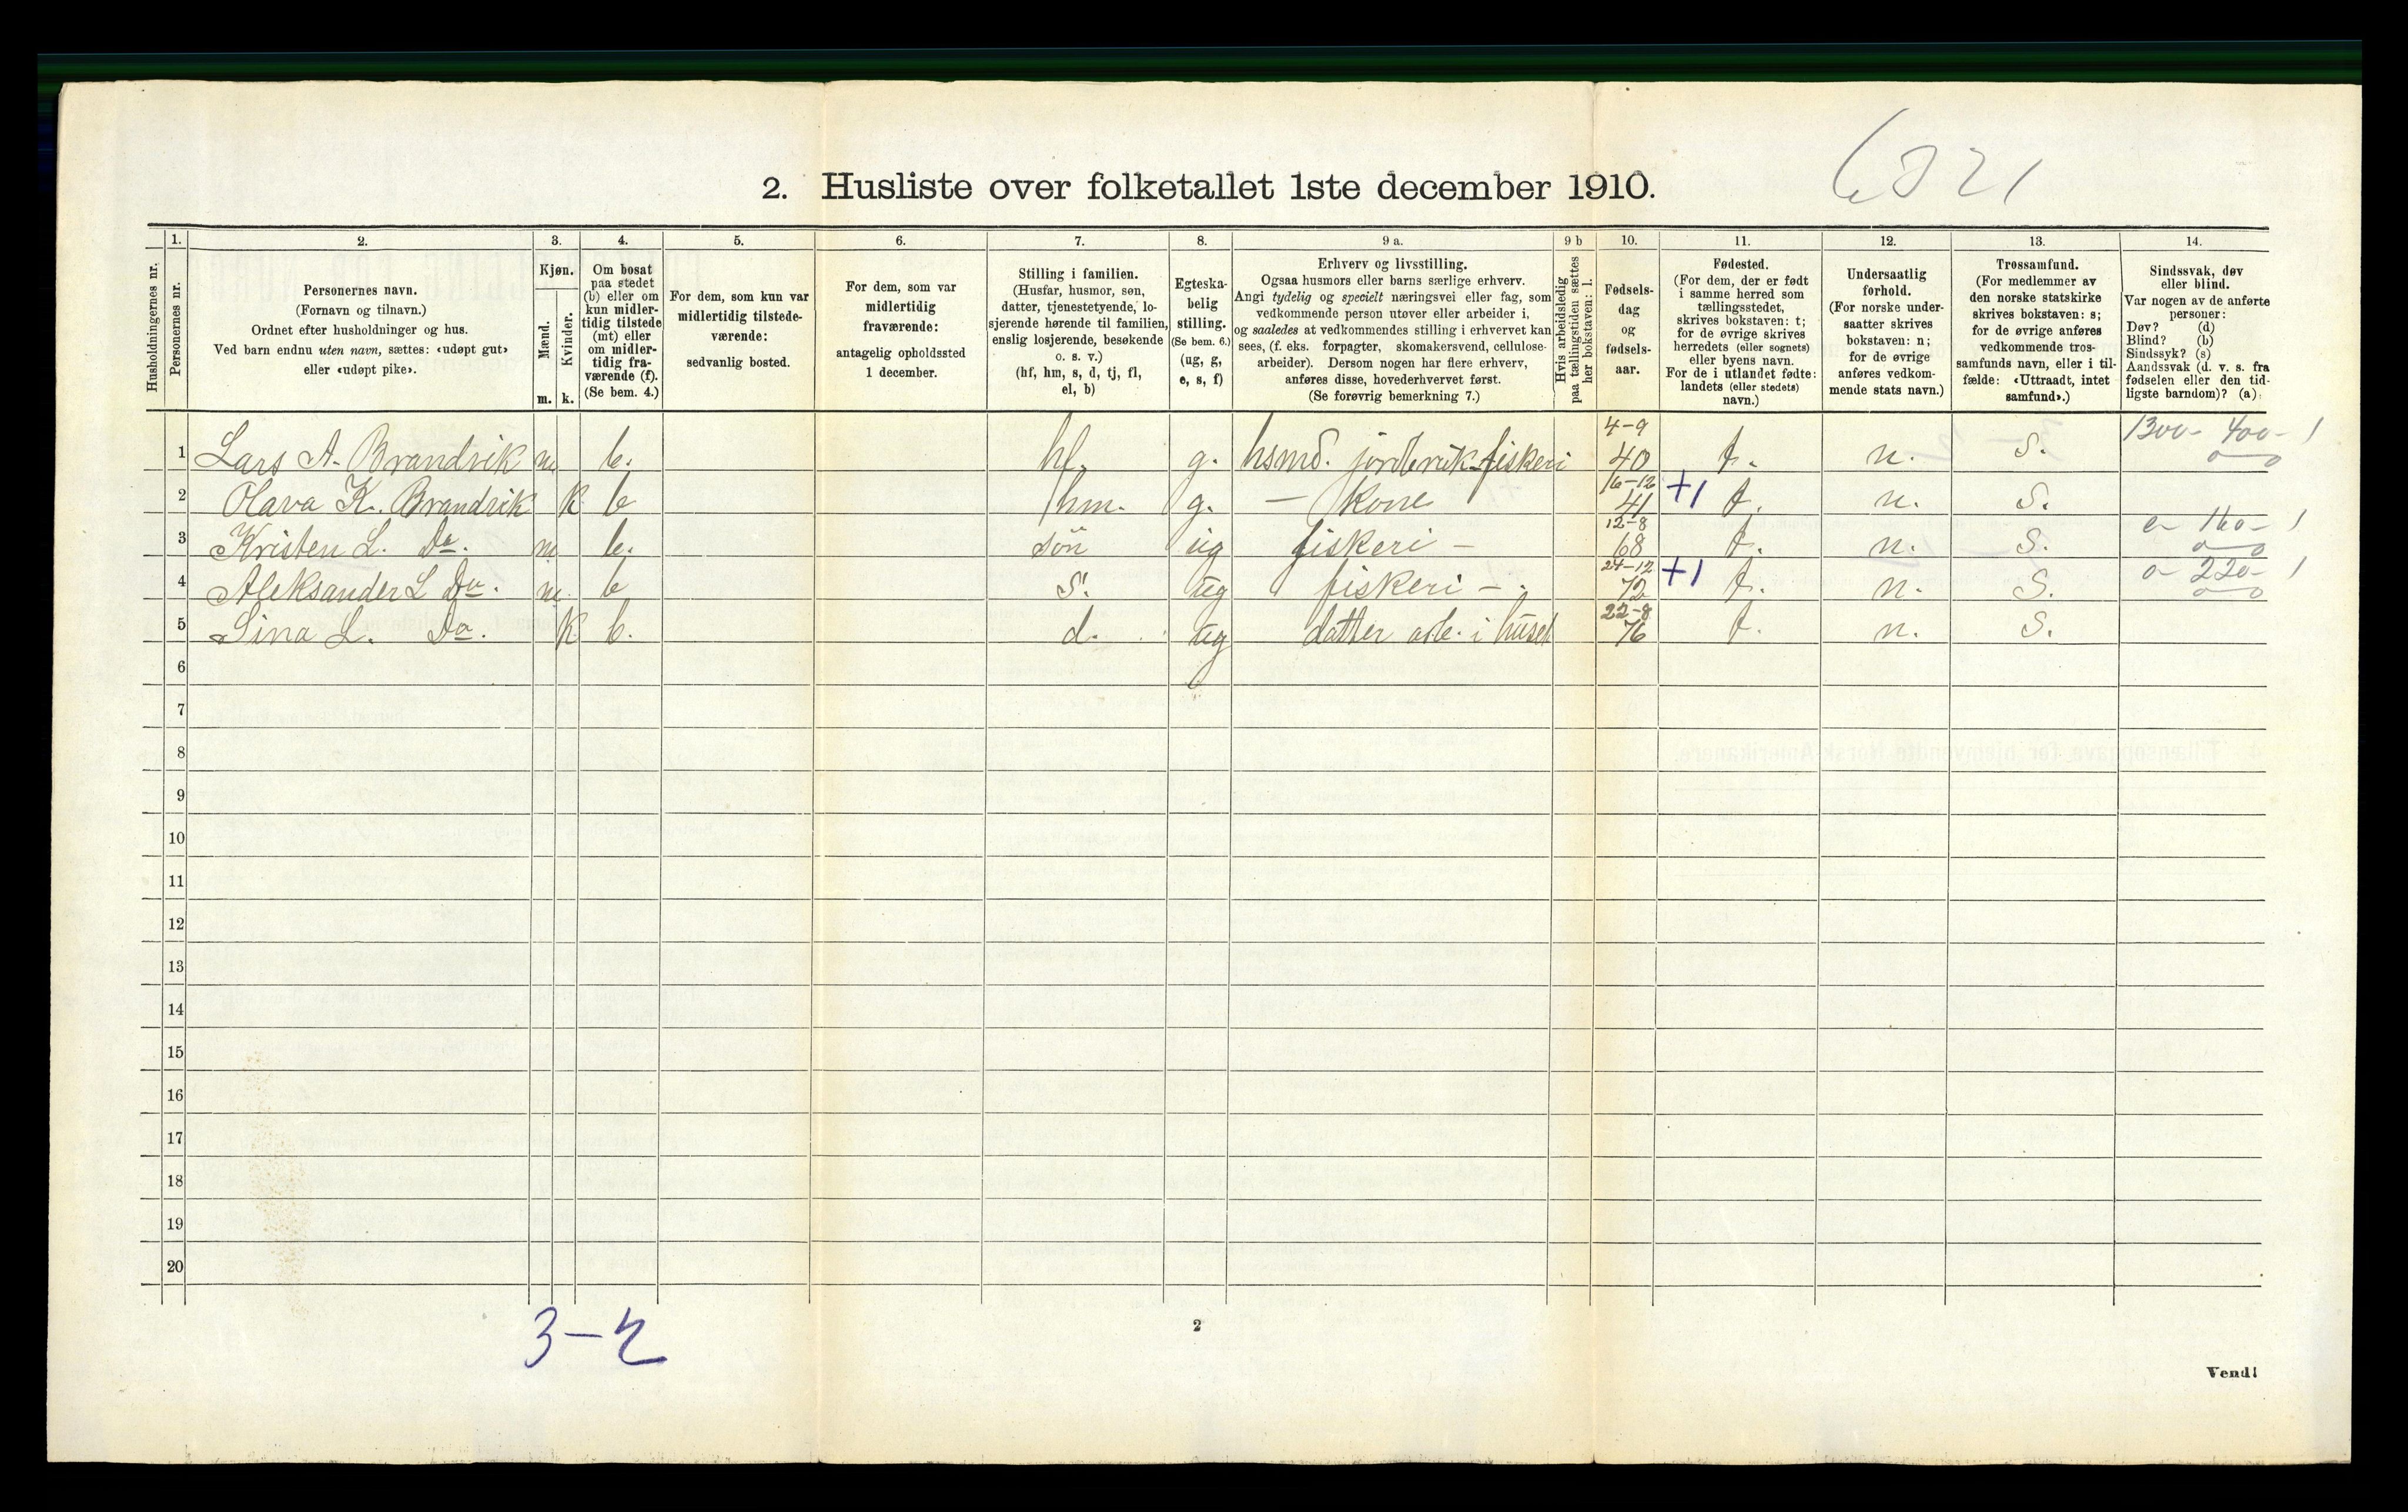 6821
2. Husliste over folketallet 1ste december 1910.
Husholdningernes nr.
1.
Personernes nr.
2.
Personernes navn.
(Fornavn og tilnavn.)
Ordnet efter husholdninger og hus.
Ved barn endnu uten navn, sættes: «udøpt gut»
eller «udøpt pike».
3.
Kjøn.
Mænd.
Kvinder.
m. k.
4.
Om bosat
paa stedet
(b) eller om
kun midler-
tidig tilstede
(mt) eller
om midler-
tidig fra-
værende (f).
(Se bem. 4.)
5.
For dem, som kun var
midlertidig tilstede-
værende:
sedvanlig bosted.
6.
For dem, som var
midlertidig
fraværende:
antagelig opholdssted
1 december.
7.
Stilling i familien.
(Husfar, husmor, søn,
datter, tjenestetyende, lo-
sjerende hørende til familien,
enslig losjerende, besøkende
o. s. v.)
(hf, hm, s, d, tj, fl,
el, b)
8.
Egteska-
belig
stilling.
(Se bem. 6.)
(ug, g,
e, s, f)
9 a.
Erhverv og livsstilling.
Ogsaa husmors eller barns særlige erhverv.
Angi tydelig og specielt næringsvei eller fag, som
vedkommende person utøver eller arbeider i,
og saaledes at vedkommendes stilling i erhvervet kan
sees, (f. eks. forpagter, skomakersvend, cellulose-
arbeider). Dersom nogen har flere erhverv,
anføres disse, hovederhvervet først.
(Se forøvrig bemerkning 7.)
9 b
Hvis arbeidsledig
paa tællingstiden sættes
her bokstaven: l.
10.
Fødsels-
dag
og
fødsels-
aar.
11.
Fødested.
(For dem, der er født
i samme herred som
tællingsstedet,
skrives bokstaven: t;
for de øvrige skrives
herredets (eller sognets)
eller byens navn.
For de i utlandet fødte:
landets (eller stedets)
navn.)
12.
Undersaatlig
forhold.
(For norske under-
saatter skrives
bokstaven: n;
for de øvrige
anføres vedkom-
mende stats navn.)
13.
Trossamfund.
(For medlemmer av
den norske statskirke
skrives bokstaven: s;
for de øvrige anføres
vedkommende tros-
samfunds navn, eller i til-
fælde: «Uttraadt, intet
samfund».)
14.
Sindssvak, døv
eller blind.
Var nogen av de anførte
personer:
Døv? (d)
Blind? (b)
Sindssyk? (s)
Aandssvak (d. v. s. fra
fødselen eller den tid-
ligste barndom)? (a)
1 Lars A. Brandvik m b. hf. g. hsmd. jordbruk-fiskeri 4-9 40 t. n. S. 1300- 400- 1
2 Olava K. Brandvik k b hm. g. - Kone 16-12 41 +1 t. n. S.
3 Kristen L. Do. m b. sön ug fiskeri - 12-8 68 t. n. S. 0- 160- 1
4 Aleksander L Do. m. b s. ug fiskeri - 24-12 72 +1 t. n. S. 0- 220- 1
5 Lina L. Do. k b. d. ug datter arb. i huset 22-8 76 t. n. S.
6
7
8
9
10
11
12
13
14
15
16
17
18
19
20
3-2
2
Vend!